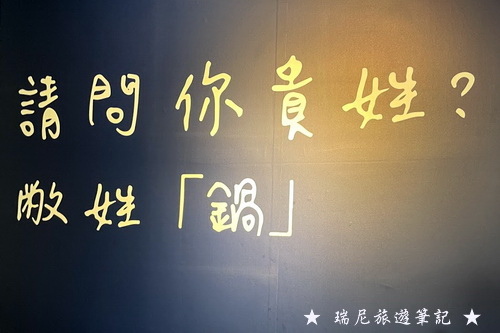 請問你貴姓？
敝姓「鍋」
★ 瑞尼旅遊筆記 ★